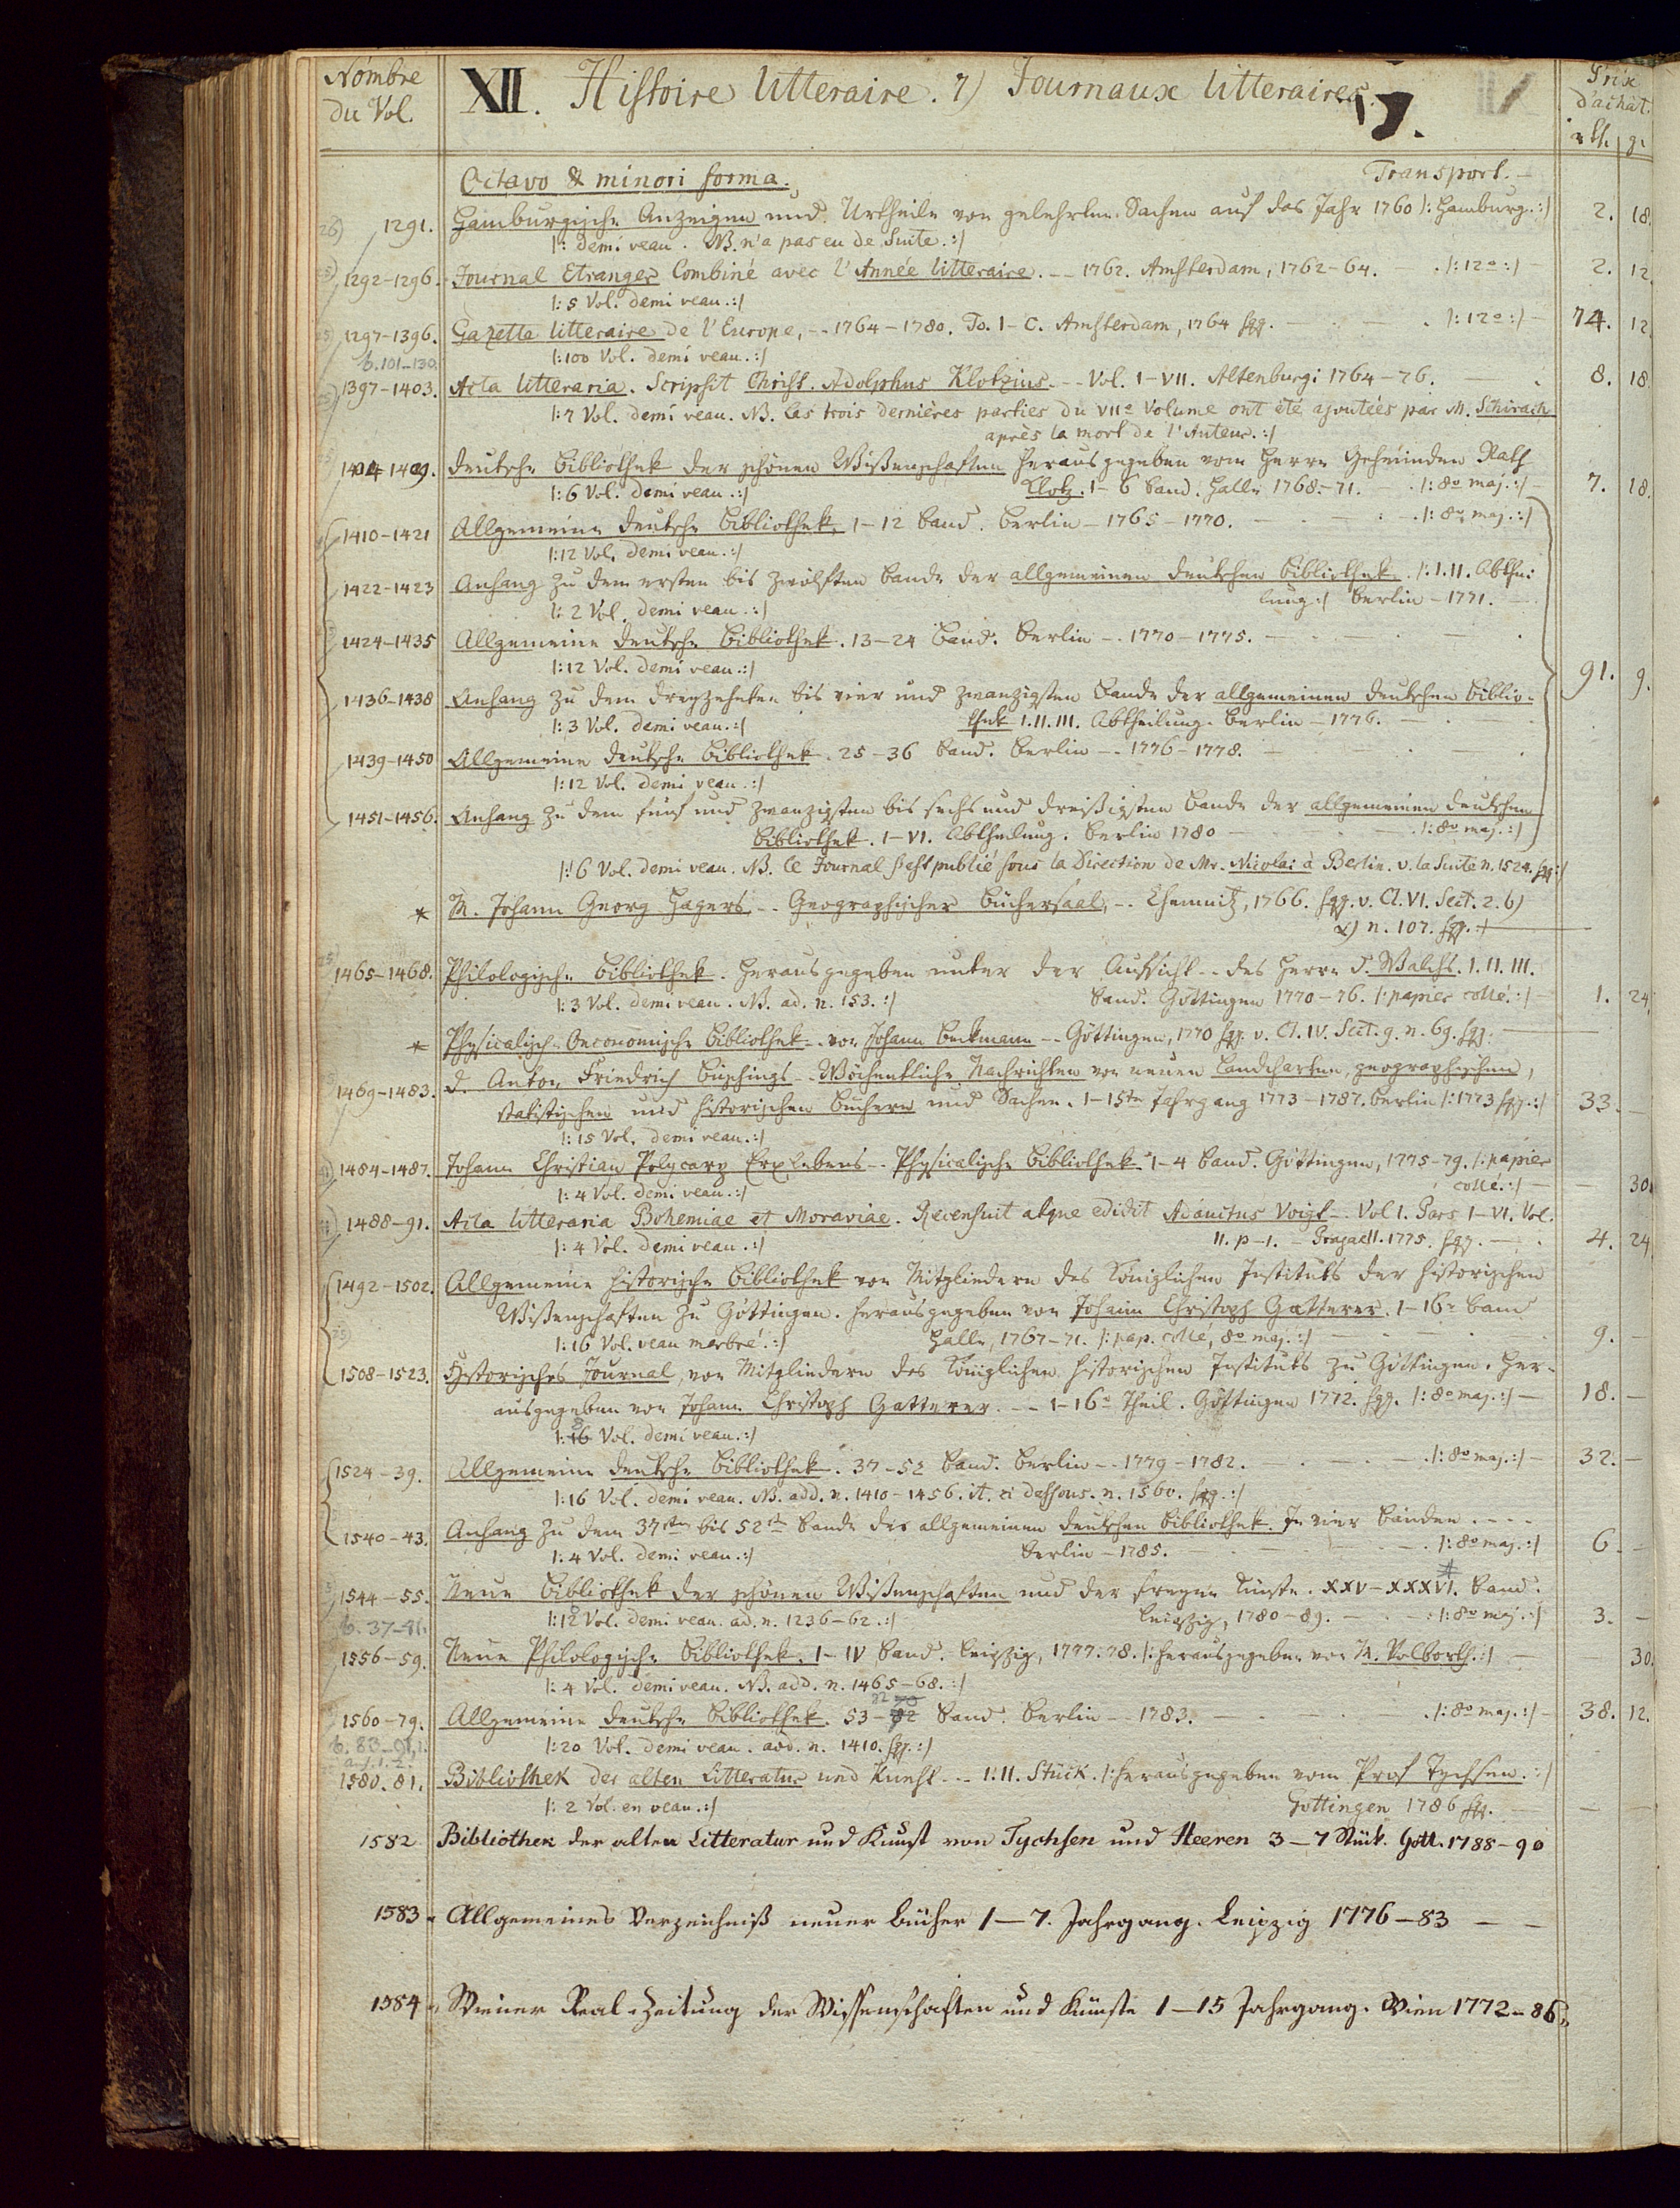 Nombre du Vol.
XII. Histoire litteraire. 7) Journaux litteraires.
Prix d'achat.
rth. g.
17.
Octavo & minori forma. Transport. —
1291. Hamburgische Anzeigen und Urtheile von gelehrten Sachen auf das Jahr 1760 /: Hamburg. :/ 2. 18.
/: demi veau. NB. n'a pas eu de Suite. :/
1292-1296. Journal Etranger Combiné avec l'Année litteraire. -- 1762. Amsterdam, 1762-64. . /: 12o :/ — 2. 12
/: 5 Vol. demi veau. :/
1297-1396. Gazette litteraire de l'Europe, -- 1764-1780. To. I-C. Amsterdam, 1764 sqq. — /: 12o :/ — 74. 12
b. 101-130. /: 100 Vol. demi veau. :/
1397-1403. Acta litteraria. Scripsit Christ. Adolphus Klotzius. -- Vol. I-VII. Altenburgi 1764-76. 8. 18.
/: 7 Vol. demi veau. NB. Las trois dernières parties du VIIe Volume ont été ajoutées par M. Schirach
après la mort de l'Auteur. :/
1404-1409. Deutsche Bibliothek der schönen Wißenschaften herausgegeben vom Herrn Geheimden Rath
/: 6 Vol. demi veau. :/ Klotz. 1-6 Band. Halle 1768-71. — . /: 8o maj. :/ — 7. 18.
1410-1421 Allgemeine deutsche Bibliothek, 1-12 Band. Berlin - 1765-1770. — . /: 8o maj. :/
/: 12 Vol. demi veau. :/
1422-1423 Anhang zu dem ersten bis zwölften Bande der allgemeinen deutschen Bibliothek. /: I. II. Abthei:
/: 2 Vol. demi veau. :/ lung :/ Berlin - 1771. —
1424-1435 Allgemeine deutsche Bibliothek. 13-24 Band. Berlin -. 1770-1775. —
/: 12 Vol. demi veau. :/
91. 9.
1436-1438 Anhang zu dem dreyzehnten bis vier und zwanzigsten Bande der allgemeinen deutschen Biblio-
/: 3 Vol. demi veau. :/ thek I. II. III. Abtheilung. Berlin - 1776. —
1439-1450 Allgemeine deutsche Bibliothek. 25-36 Band. Berlin -- 1776-1778. —
/: 12 Vol. demi veau. :/
1451-1456. Anhang zu dem fünf und zwanzigsten bis sechs und dreißigsten Bande der allgemeinen deutschen
Bibliothek. I-VI. Abtheilung. Berlin 1780 — . /: 8o maj. :/
/: 6 Vol. demi veau. NB. Ce Journal s'est publié sous la Direction de Mr. Nicolai à Berlin. v. la Suite n. 1524. sqq. :/
* M. Johann Georg Hagers -- Geographischer Büchersaal, -- Chemnitz, 1766. sqq. v. Cl. VI. Sect. 2. b)
α) n. 107. sqq. :/ —
1465-1468. Philologische Bibliothek. Herausgegeben unter der Aufsicht -- des Herrn D. Walchs. I. II. III.
/: 3 Vol. demi veau. NB. ad. n. 153. :/ Band. Göttingen 1770-76. /: papier collé. :/ — 1. 24
* Physicalisch-Oeconomische Bibliothek -- von Johann Beckmann -- Göttingen, 1770 sqq. v. Cl. IV. Sect. 9. n. 69. sqq. —
1469-1483. D. Anton Friedrich Büschings -- Wöchentliche Nachrichten von neuen Landcharten, geographischen,
statistischen und historischen Büchern und Sachen. 1-15te Jahrgang 1773-1787. Berlin /: 1773 sqq. :/ 33. —
/: 15 Vol. demi veau. :/
1484-1487. Johann Christian Polycarp Erxlebens -- Physicalische Bibliothek 1-4 Band. Göttingen, 1775-79. /: papier
/: 4 Vol. demi veau. :/ collé. :/ — — 30
1488-91. Acta litteraria Bohemiae et Moraviae. Recensuit atque edidit Adauctus Voigt -- Vol I. Pars I-VI. Vol.
/: 4 Vol. demi veau. :/ II. p-1. - Pragae 1775. sqq. — 4. 24
1492-1502. Allgemeine historische Bibliothek von Mitgliedern des Königlichen Instituts der historischen
Wißenschaften zu Göttingen. Herausgegeben von Johann Christoph Gatterer. 1-16r Band
/: 16 Vol. veau marbré. :/ Halle, 1767-71. /: pap. collé, 8o maj. :/ — 9. —
1508-1523. Historisches Journal, von Mitgliedern des Königlichen historischen Instituts zu Göttingen. Her-
ausgegeben von Johann Christoph Gatterer. -- 1-16r Theil. Göttingen 1772. sqq. /: 8o maj. :/ — 18. —
/: 16 Vol. demi veau. :/
1524-39. Allgemeine deutsche Bibliothek. 37-52 Band. Berlin -- 1779-1782. — . /: 8o maj. :/ — 32. —
/: 16 Vol. demi veau. NB. add. n. 1410-1456. it. ci dessous. n. 1560. sqq. :/
1540-43. Anhang zu dem 37sten bis 52sten Bande der allgemeinen deutschen Bibliothek. In vier Bänden . - - -
/: 4 Vol. demi veau. :/ Berlin - 1785. — . /: 8o maj. :/ 6. —
1544-55. Neue Bibliothek der schönen Wißenschaften und der freyen Künste. XXV-XXXVI. Band.
b. 37-41. /: 12 Vol. demi veau. ad. n. 1236-62. :/ Leipzig, 1780-89. — . /: 8o maj. :/ 3. —
1556-59. Neue Philologische Bibliothek. I-IV Band. Leipzig, 1777-78. /: herausgegeben von M. Volborth. :/ — 30.
/: 4 Vol. demi veau. NB. add. n. 1465-68. :/
1560-79. Allgemeine deutsche Bibliothek. 53-72 Band. Berlin -- 1783. — . /: 8o maj. :/ — 38. 12.
/: 20 Vol. demi veau. add. n. 1410. sqq. :/
1580. 81. Bibliothek der alten Litteratur und Kunst -- I. II. Stück. /: herausgegeben vom Prof Tychsen. :/
/: 2 Vol. en veau. :/ Gottingen 1786 sqq. — — —
1582 Bibliothek der alten Litteratur und Kunst von Tychsen und Heeren 3-7 Stück. Gött. 1788-90
1583. Allgemeines Verzeichniß neuer Bücher 1-7. Jahrgang. Leipzig 1776-83 — —
1584. Wiener Real-Zeitung der Wissenschaften und Künste 1-15 Jahrgang. Wien 1772-86.